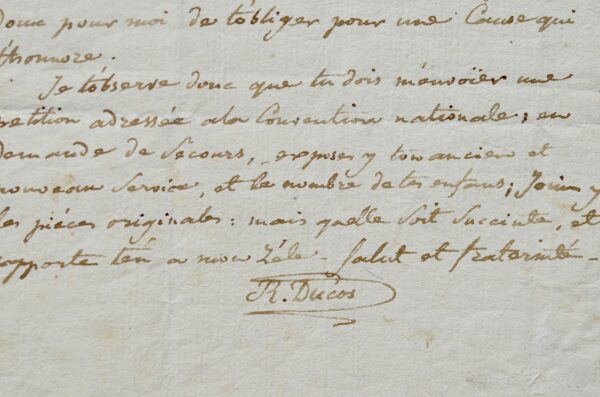 donc pour moi de t'obliger pour une Cause qui
t'honnore.
Je t'observe donc que tu dois m'envoïer une
petition adressée a la Convention nationale; en
demande de Secours, exposes y ton ancien et
nouveau Service, et le nombre de tes enfans; Joins y
les piéces originales: mais quelle Soit Succinte, et
rapporte t'én a mon Zéle - Salut et fraternité -
R. Ducos